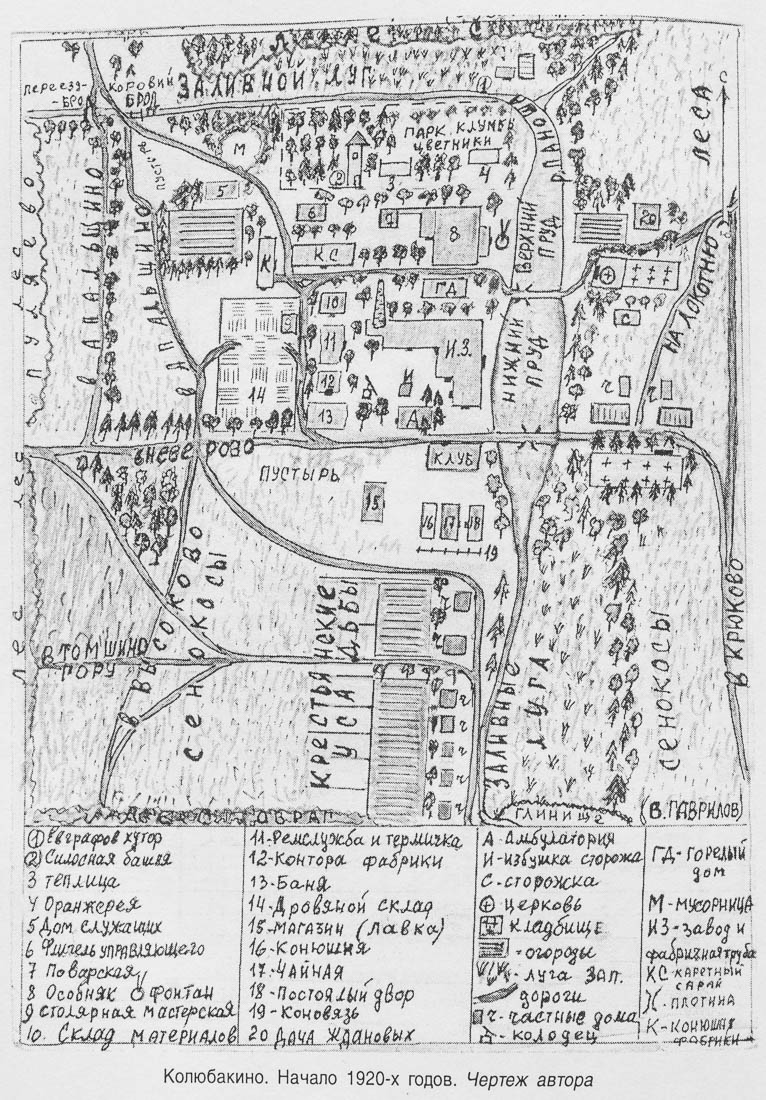 ЗАЛИВНОЙ ЛУГ
ПЕРЕЕЗД-
-БРОД
КОРОВИЙ
БРОД
М
ПАРК КЛУМБЫ
ЦВЕТНИКИ
1
2
3
4
5
6
7
8
Р. ПАНОША
ВЕРХНИЙ
ПРУД
20
ЛЕСА
С
В ПУЛЯЕВО
ЛЕС
В АПАЛЬЩИНО
В АПАЛЬЩИНО
К
К С
ГД
9
10
11
12
13
14
И.З.
И
А
НИЖНИЙ
ПРУД
С
НА ЛОКОТНЮ
Ч
Ч
ЛЕС
ВНЕВЕРОВО
ПУСТЫРЬ
КЛУБ
15
16
17
18
19
В ВЫСОКОВО
СЕНОКОСЫ
ЛЕС
В ТОМШИНО
ГОРУ
КРЕСТЬЯНСКИЕ
УСАДЬБЫ
Ч
Ч
Ч
Ч
Ч
Ч
Ч
ЗАЛИВНЫЕ
ЛУГА
СЕНОКОСЫ
В КРЮКОВО
ОВРАГ
ГЛИНИЩЕ
(В. ГАВРИЛОВ)
1 Евграфов хутор
2 Силосная башня
3 теплица
4 Оранжерея
5 Дом служащих
6 Флигель управляющего
7 Поварская
8 Особняк Фонтан
9 столярная мастерская
10. Склад материалов
11- Ремслужба и термичка
12- Контора фабрики
13- Баня
14- Дровяной склад
15- магазин (лавка)
16- Конюшня
17- Чайная
18- Постоялый двор
19- Коновязь
20 Дача Ждановых
А- Амбулатория
И- избушка сторожа
С- сторожка
церковь
кладбище
-огороды
-луга зал.
дороги
ч- частные дома
- колодец
ГД- горелый
дом
М- мусорница
ИЗ- завод и
фабричная труба
КС каретный
сарай
- плотина
К- конюшня
фабрики
Колюбакино. Начало 1920-х годов. Чертеж автора